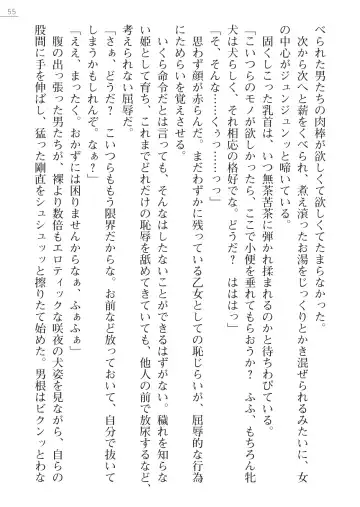 55
べられた男たちの肉棒が欲しくて欲しくてたまらなかった。
次から次へと薪をくべられ、煮え滾ったお湯をじっくりとかき混ぜられるみたいに、女
の中心がジュンジュンッと啼いている。
固くしこった乳首は、いつ無茶苦茶に弾かれ揉まれるのかと待ちわびている。
「こいつらのモノが欲しかったら、ここで小便を垂れてもらおうか? ふふ、もちろん牝
犬は犬らしく、それ相応の格好でな。どうだ? ははは」
「そ、そんな……くぅっ……っ」
思わず顔が赤らんだ。まだわずかに残っている乙女としての恥じらいが、屈辱的な行為
にためらいを覚えさせる。
いくら命令だとは言っても、そんなはしたないことができるはずがない。穢れを知らな
い姫として育ち、これまでどれだけの恥辱を舐めてきていても、他人の前で放尿するなど、
考えられない屈辱だ。
「さぁ、どうだ? こいつらももう限界だからな。お前など放っておいて、自分で抜いて
しまうかもしれんぞ。なぁ?」
「ええ、まったく。おかずには困りませんからなぁ。ふぁふぁ」
腹の出っ張った男たちが、裸より数倍もエロティックな咲夜の犬姿を見ながら、自らの
股間に手を伸ばし、猛った剛直をシュシュッッと擦りたて始めた。男根はビクンッとわな